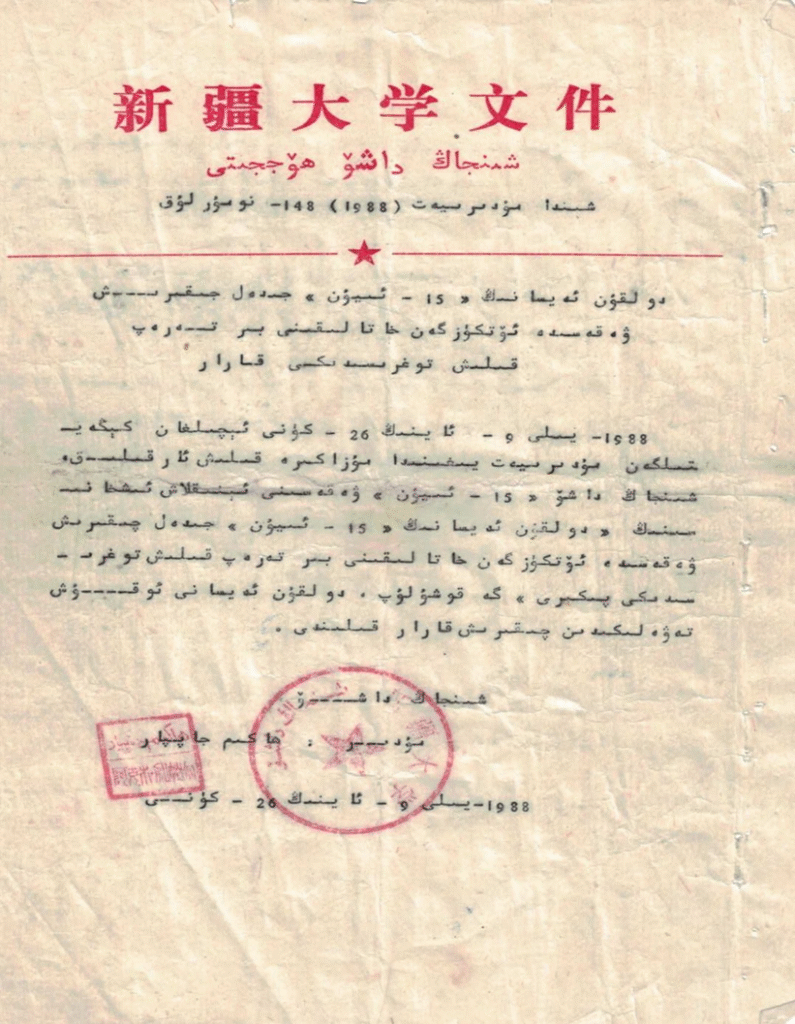 新疆大学文件
شىنجاڭ داشۆ ھۆججىتى
شىندا مۇدىرىيەت (1988) 148- نومۇرلۇق
دولقۇن ئەيسانىڭ « 15 - ئىيۇن » جىدەل چىقىرىش
ۋەقەسىدە ئۆتكۈزگەن خاتالىقىنى بىر تەرەپ
قىلىش توغرىسىدىكى قارار
1988- يىلى 9 - ئاينىڭ 26 - كۈنى ئېچىلغان كېڭەيـ
تىلگەن مۇدىرىيەت يىغىنىدا مۇزاكىرە قىلىش ئارقىلىق،
شىنجاڭ داشۆ « 15 - ئىيۇن » ۋەقەسىنى ئېنىقلاش ئىشخانىـ
سىنىڭ « دولقۇن ئەيسانىڭ « 15 - ئىيۇن » جىدەل چىقىرىش
ۋەقەسىدە ئۆتكۈزگەن خاتالىقىنى بىر تەرەپ قىلىش توغرىـ
سىدىكى پىكىرى » گە قوشۇلۇپ ، دولقۇن ئەيسانى ئوقۇش
تەۋەلىكىدىن چىقىرىش قارار قىلىندى .
شىنجاڭ داشۆ
مۇدىر : ھاكىم جاپپار
1988-يىلى 9 - ئاينىڭ 26 - كۈنى